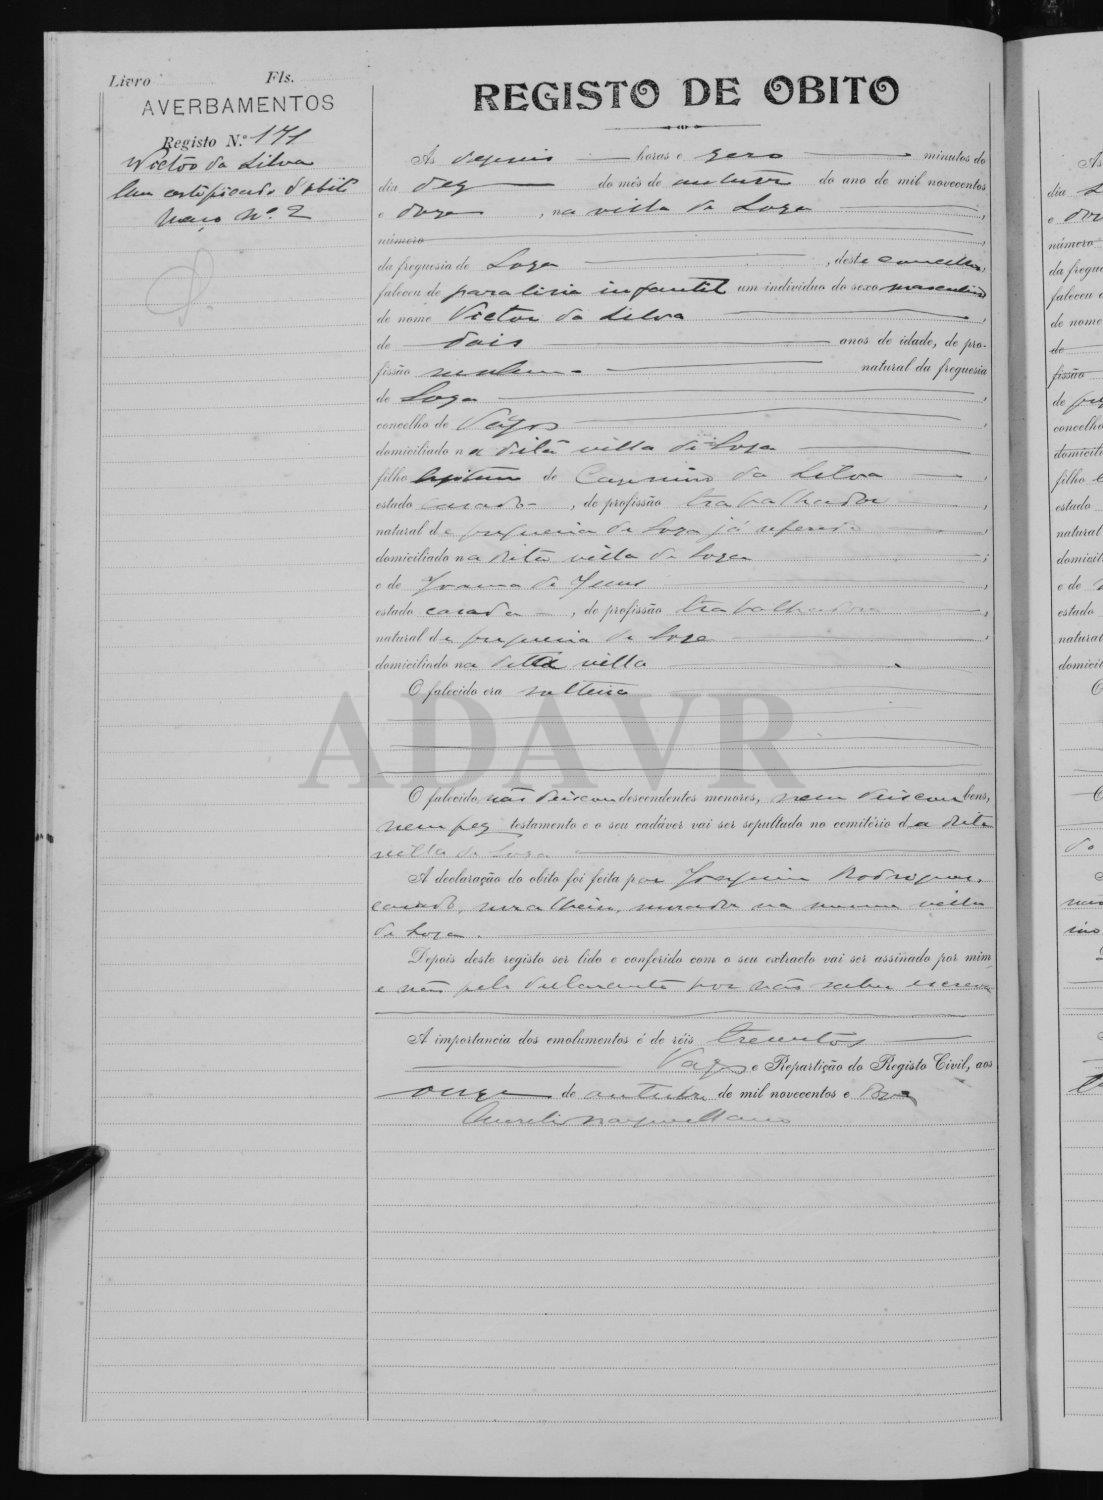 Livro Fls.
AVERBAMENTOS
Registo N.º 171
Victor da Silva
Um certificado d'obito
Maço Nº 2
REGISTO DE OBITO
Ás horas e zero minutos do
dia dez do mês de outubro do ano de mil novecentos
e doze, na villa de Soza,
número
da freguesia de Soza, deste concelho,
faleceu de paralisia infantil um individuo do sexo masculino
de nome Victor da Silva,
de dois anos de idade, de pro-
fissão nenhuma natural da freguesia
de Soza,
concelho de Vagos,
domiciliado na dita villa de Soza
filho legitimo de Casimiro da Silva,
estado casado, de profissão trabalhador,
natural da freguesia de Soza já referida,
domiciliado na dita villa de Soza;
e de Joanna de Jesus,
estado casada, de profissão trabalhadora,
natural da freguesia de Soza,
domiciliado na dita villa.
O falecido era solteiro
ADAVR
O falecido não deixou descendentes menores, nem deixou bens,
nem fez testamento e o seu cadáver vai ser sepultado no cemitério da dita
villa de Soza
A declaração do obito foi feita por Joaquim Rodrigues,
casado, morador na mesma villa
de Soza.
Depois deste registo ser lido e conferido com o seu extracto vai ser assinado por mim
e não pelo declarante por não saber escrever
A importancia dos emolumentos é de réis trezentos
Vagos e Repartição do Registo Civil, aos
onze de outubro de mil novecentos e doze
As
dia
e
número
da fregue
faleceu
de nome
de
fissão
de
concelho
domicili
filho
estado
natural
domicili
e de
estado
natural
domicili